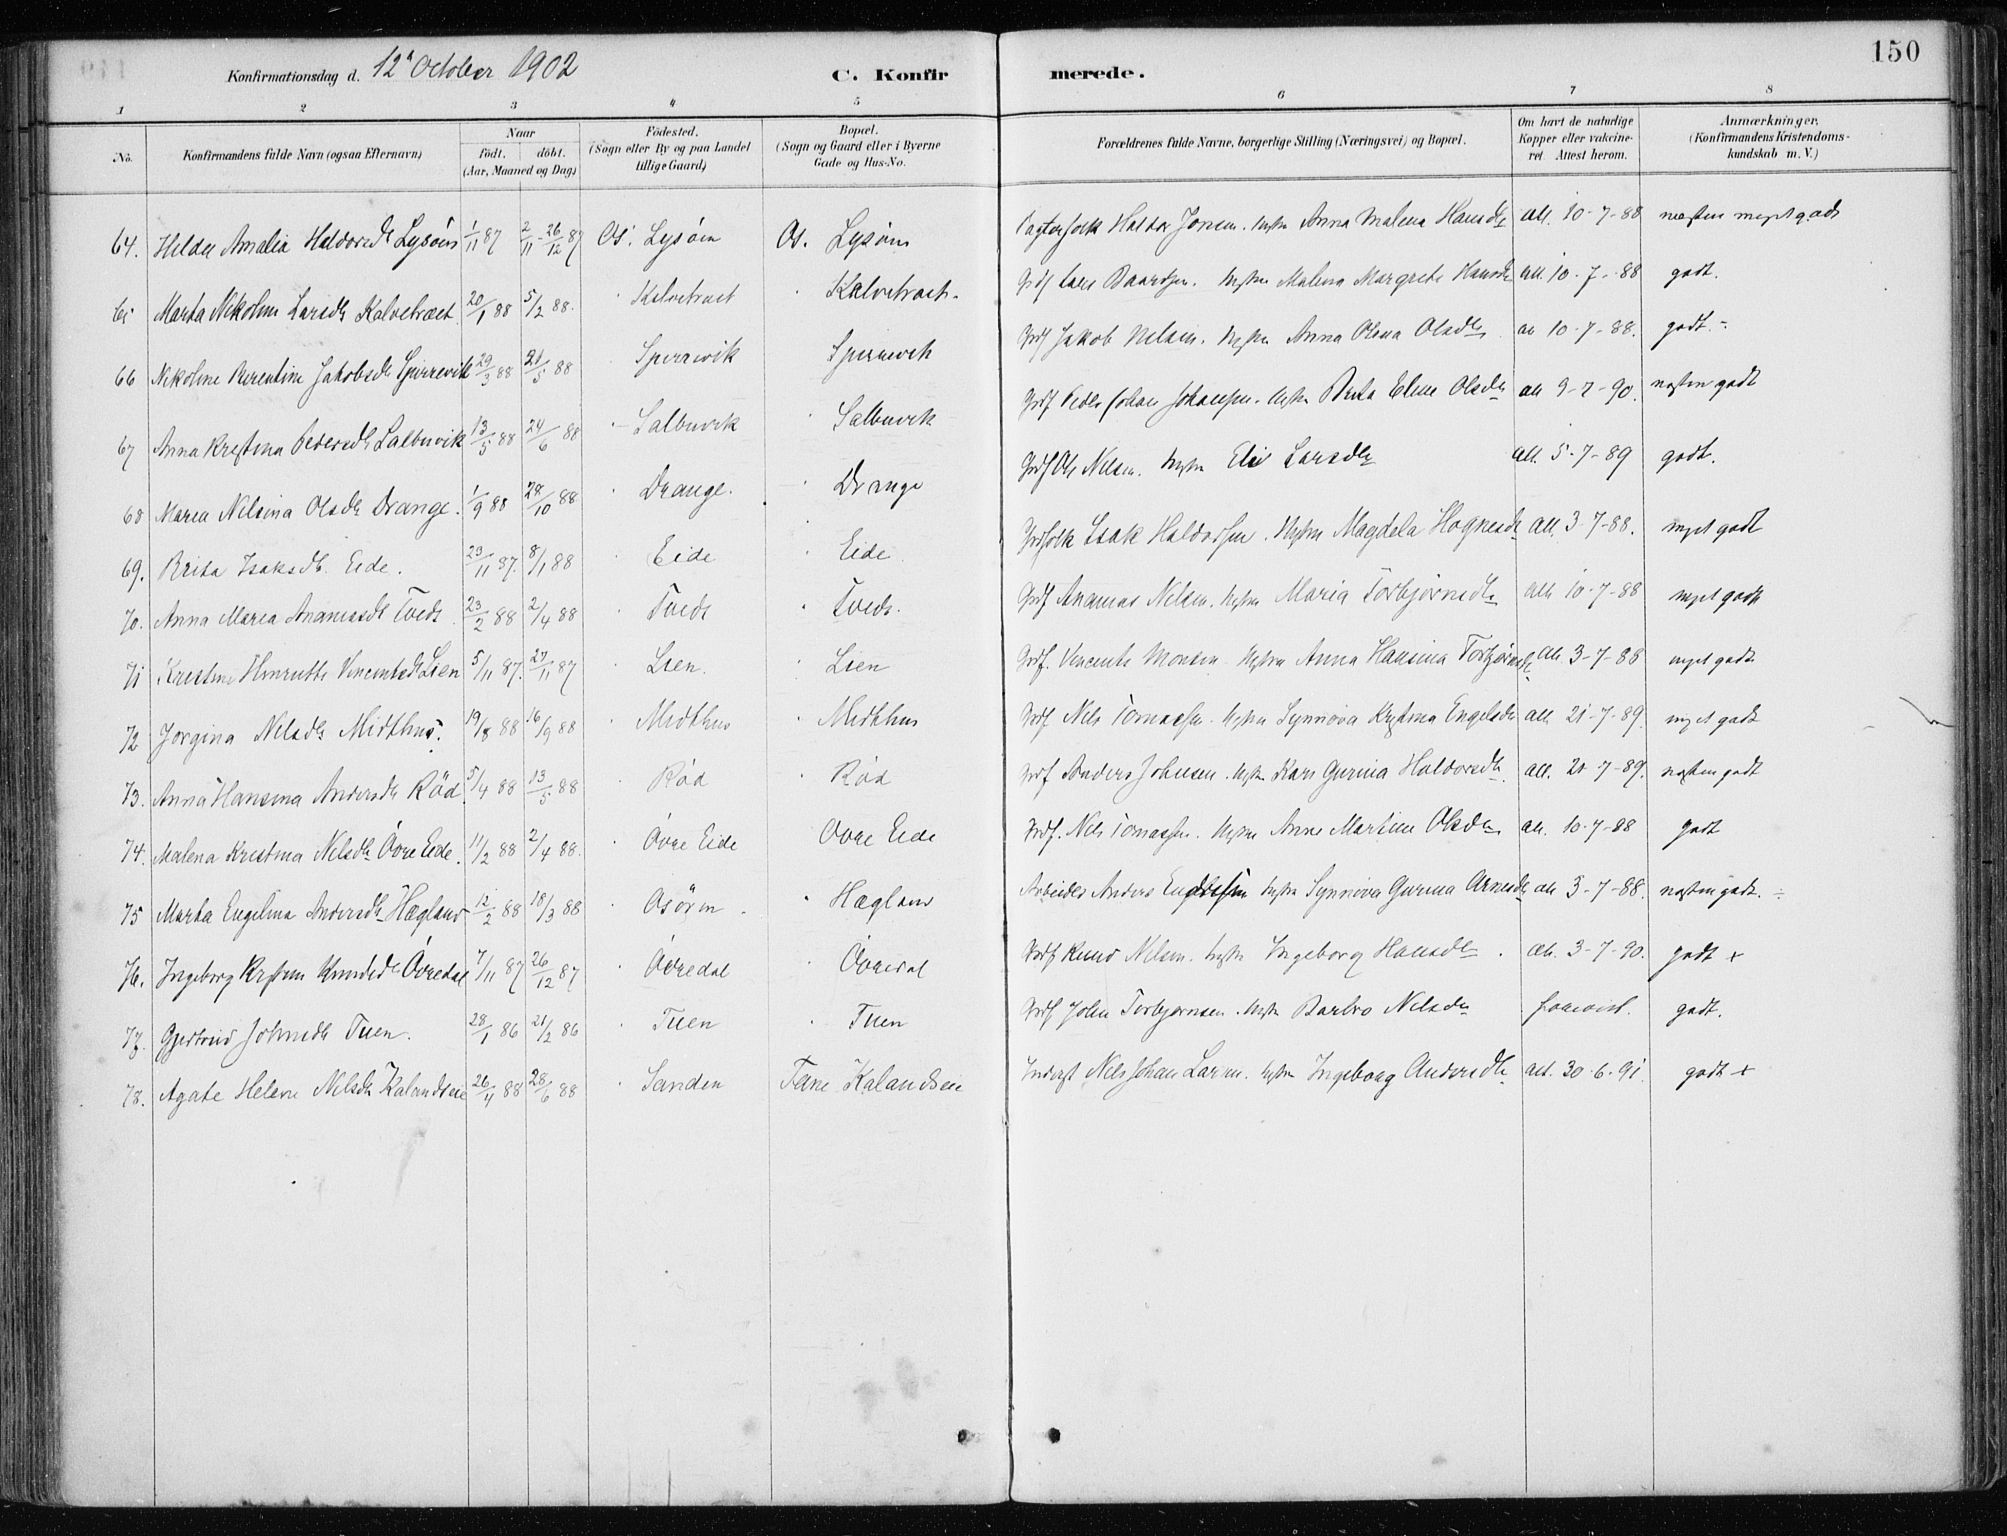 150
Konfirmationsdag d. 12' October 1902 C. Konfirmerede.
1 2 3 4 5 6 7 8
No. Konfirmandens fulde Navn (ogsaa Efternavn) Naar födt. döbt. (Aar, Maaned og Dag) Födested. (Sogn eller By og paa Landet tillige Gaard) Bopæl. (Sogn og Gaard eller i Byerne Gade og Hus-No. Forældrenes fulde Navne, borgerlige Stilling (Næringsvei) og Bopæl. Om havt de naturlige Kopper eller vakcineret Attest herom. Anmærkninger, (Konfirmandens Kristendomskundskab m. V.)
64. Hilda Amalia Haldorsdr Lysöen 1/11 87 2/11 - 26/12 87 Os. Lysöen Os. Lysöen Haldor Jonsen. Hustru Anna Malena Hansdr att. 10-7-88 næsten meget godt
65 Marta Nikoline Larsdr Kalvetræet 20/1 88 5/2 88. Kalvetræet Kalvetræet. Grdf Lars Baardsen. Hustru Malena Margrete Hansdr att 10-7-88 godt.
66 Nikoline Berentine Jakobsdr Sperrevik 29/3 88 21/5 88 Sperrevik Sperrevik Grdf Jakob Nelsen. Hustru Anna Olena Olsdr att 10-7-88. godt.
67 Anna Kristina Pedersdr Salbuvik 13/5 88 24/6 88 Salbuvik Salbuvik Grdf Peder Johan Johansen. Hustru Brita Elene Olsdr att 9-7-90. næsten godt
68 Maria Nilsina Olsdr Drange. 1/9 88 28/10 88 Drange. Drange Grdf Ole Nelsen. Hustru Eli Larsdr att. 5-7-89 godt.
69. Brita Isaksdr Eide. 23/11 87. 8/1 88 Eide Eide Isak Haldorsen. Hustru Magdela Hognesdr att. 3-7-88. meget godt
70. Anna Maria Ananiasdr Tveds 23/2 88 2/4 88 Tveds Tveds. Grdf Ananias Nelsen. Hustru Maria Torbjørnsdr att 10-7-88 meget godt
71 Kristine Henriette Vincentsdr Lien 5/11 87. 27/11 87 Lien. Lien Grdf. Vincents Monsen Hustru Anna Hansina Torbjørnsdr att 3-7-88 meget godt
72 Jorgina Nelsdr Midthus. 19/8 88 16/9 88 Midthus Midthus Grdf. Nils Tomassen. Hustru Synnöva Kristina Engelsdr att 21-7-89. meget godt
73. Anna Hansina Andersdr Röd. 5/4 88 13/5 88 Röd Röd Grdf Anders Johnsen. Hustru Kari Gurina Haldorsdr. att. 21-7-89. næsten godt
74. Malena Kristina Nelsdr Övre Eide. 11/2 88 2/4 88. Övre Eide Övre Eide Grdf. Nils Tomassen. Hustru Anne Martine Olsdr att. 10-7-88 godt
75 Marta Engelina Andersdr Hægland 12/2 88 18/3 88 Osören. Hægland Arbeider Anders Hustru Synnöva Gurina Arnesdr att 3-7-88. næsten godt.
76. Ingeborg Kristine Knudsdr Övredal 7/11 87 26/12 87 Övredal Övredal Grdf Knud Nelsen. Hustru Ingeborg Hansdr. att. 3-7-90. godt +
77. Gjertrud Johnsdr Tuen. 28/1 86 21/2 86 Tuen Tuen Grdf John Torbjørnsen. Hustru Barbro Nelsdr forevist. godt.
78. Agate Helene Nelsdr Kalandseie 26/4 88 28/6 88 Sanden Fane Kalandseie Inderst Nils Johan Larsen. Hustru Ingeborg Andersdr att. 30-6-91. godt +